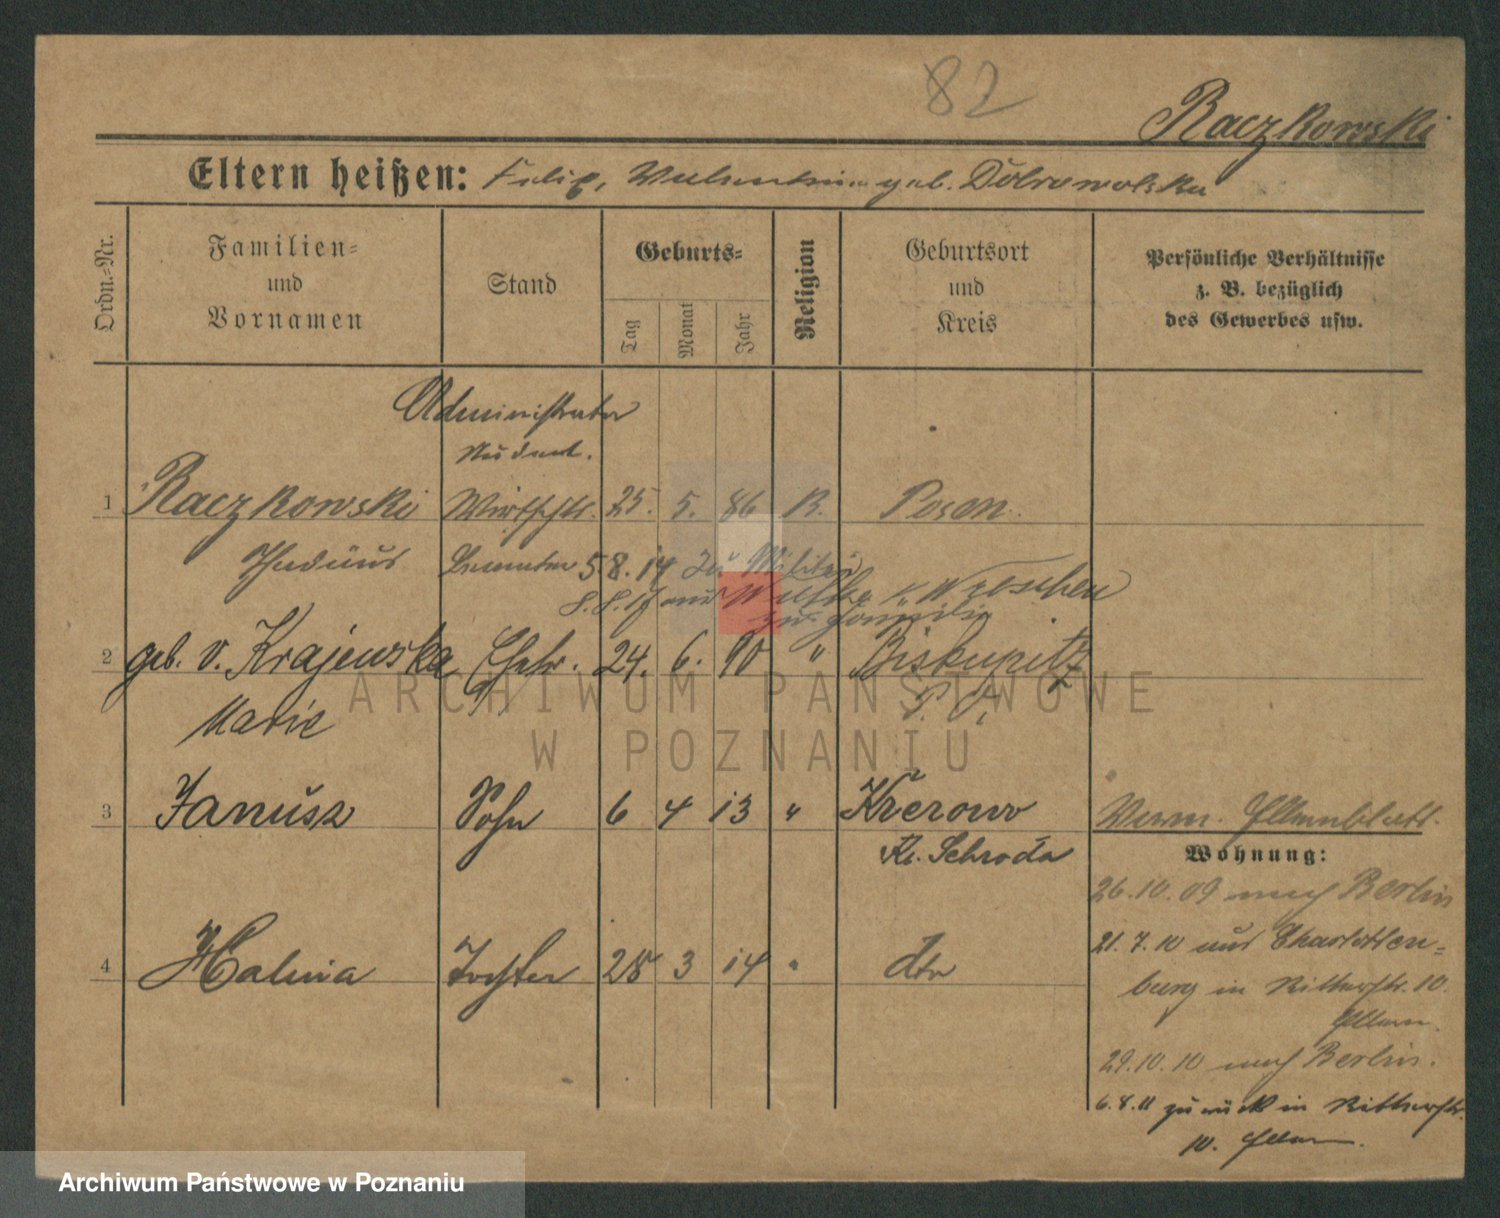 82
Raczkowski
Eltern heißen: Felix, Valentina geb. Dobrowolska
Ordn.-Nr.
Familien- und Vornamen
Stand
Geburts-
Tag
Monat
Jahr
Religion
Geburtsort und Kreis
Persönliche Verhältnisse
z. B. bezüglich
des Gewerbes usw.
Administrator
Student.
1 Raczkowski Wirtschts. 25. 5. 86 K. Posen.
Thadäus
5 8. 14 zu Militär
8. 8. 17 aus Wreschen
zur Familie
2 geb. v. Krajewska Ehefr. 24. 6. 90 " Biskupitz
Marie
3 Janusz Sohn 6 4 13 " Krerowo
Kr. Schroda
4 Halina Tochter 28 3 14 " dto
Verm. Elternblatt.
Wohnung:
26.10.09 nach Berlin
21.7.10 aus Charlotten=
burg in Ritterstr. 10.
Eltern.
29.10.10 nach Berlin.
6.8.11 zurück in Ritterstr.
10. Eltern.
ARCHIWUM PAŃSTWOWE
W POZNANIU
Archiwum Państwowe w Poznaniu